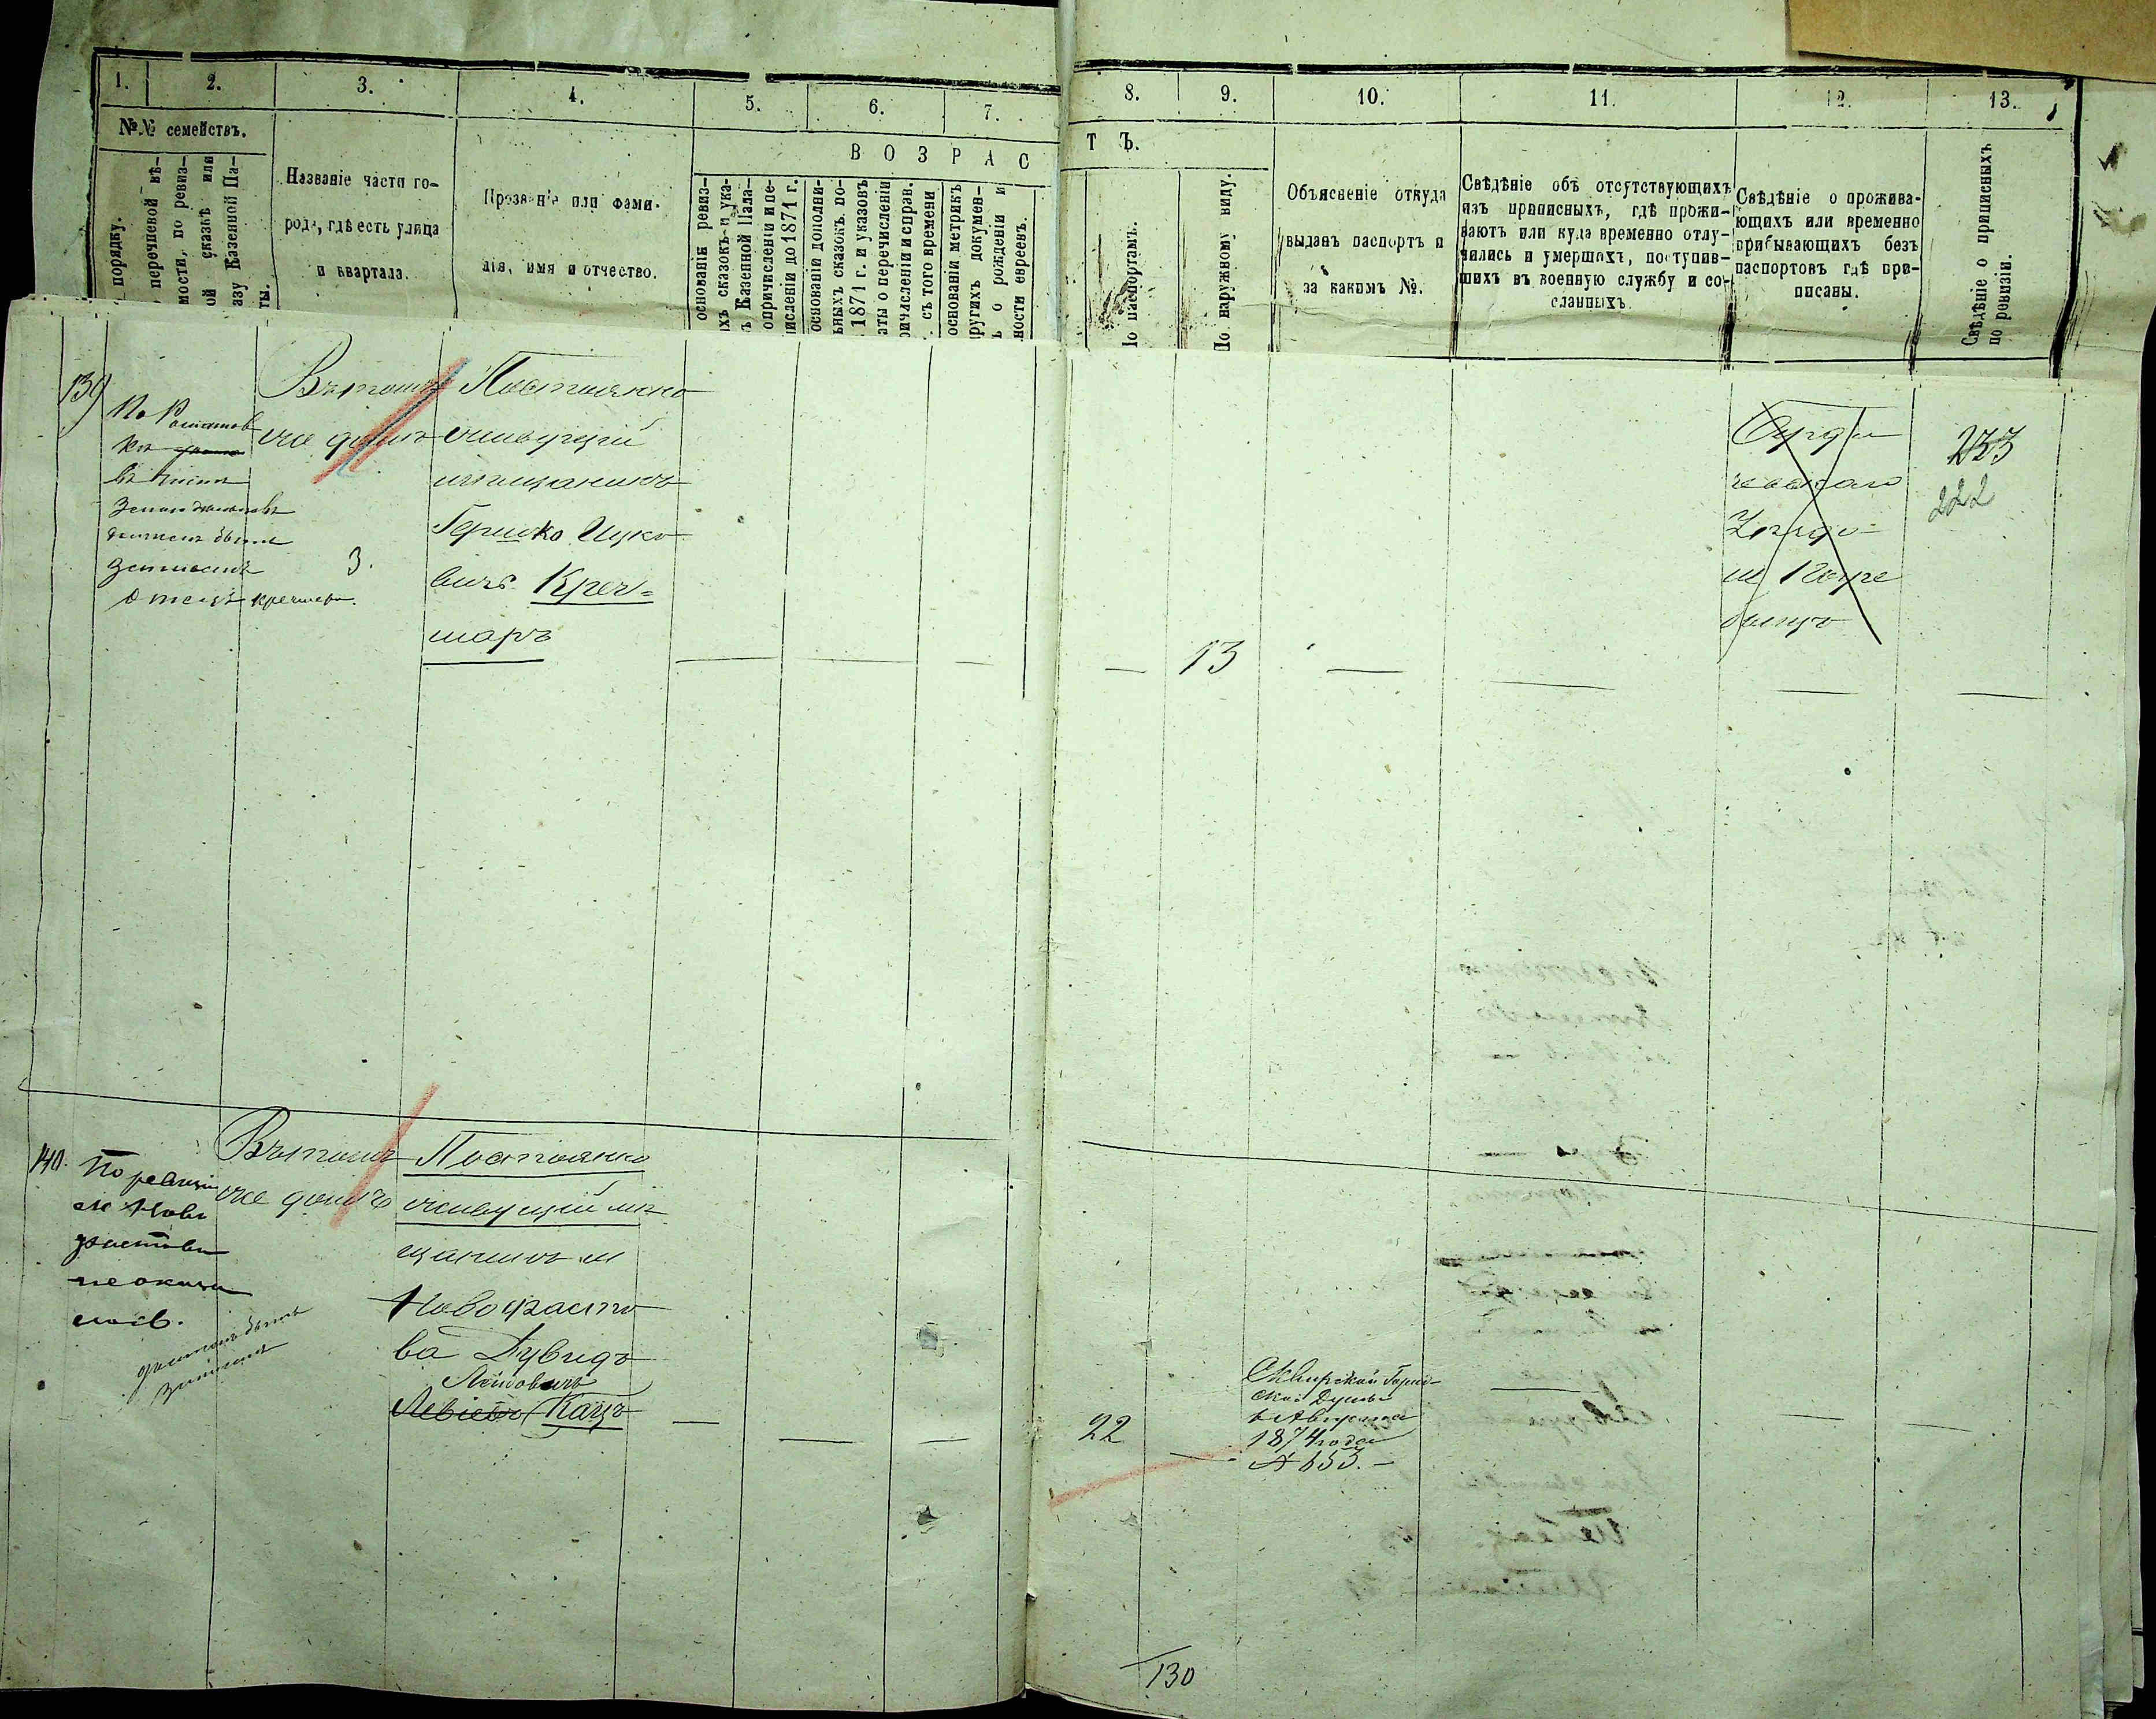 1.
2.
3.
4.
5.
6.
7.
8.
9.
10.
11.
12.
13.
№№ семействъ.
порядку.
перечневой вѣ-
мости, по ревиз-
ой сказкѣ или
азу Казенной Па-
ты.
Названіе части го-
рода, гдѣ есть улица
и квартала.
Прозваніе или фами-
лія, имя и отчество.
ВОЗРАС
ТЪ.
основаніи ревиз-
хъ сказокъ и ука-
ъ Казенной Пала-
опричисленіи и пе-
ислени до 1871 г.
основаніи дополни-
ьныхъ сказокъ по-
1871 г. и указовъ
аты о перечисленіи
ричисленіи и справ.
съ того времени
основаніи метрикъ
другихъ докумен-
ъ о рожденіи и
ности евреевъ.
По паспортамъ.
По наружному виду.
Объясненіе откуда
выданъ паспортъ и
за какимъ №.
Свѣдѣніе объ отсутствующихъ
изъ приписныхъ, гдѣ прожи-
ваютъ или куда временно отлу-
чились и умершихъ, поступив-
шихъ въ военную службу и со-
сланныхъ.
Свѣдѣніе о прожива-
ющихъ или временно
прибывающихъ безъ
паспортовъ гдѣ при-
писаны.
Свѣдѣніе о приписныхъ
по ревизіи.
139
Въ томъ
же домѣ
3.
записанъ
отецъ Кречмара.
Постоянно
живущій
мѣщанинъ
Гершко Ицко
вичъ Креч=
маръ
13
233
222
140.
По ревизіи
м. Ново
фастова
не оказал
ся.
долженъ быть
записанъ
Въ томъ
же домѣ
Постоянно
живущій мѣ
щанинъ м
Новофасто
ва Дувидъ
Лейбовичъ
Кацъ
22
Сквирской Город-
ской Думы
Августа
1874 года
№ 653.
130